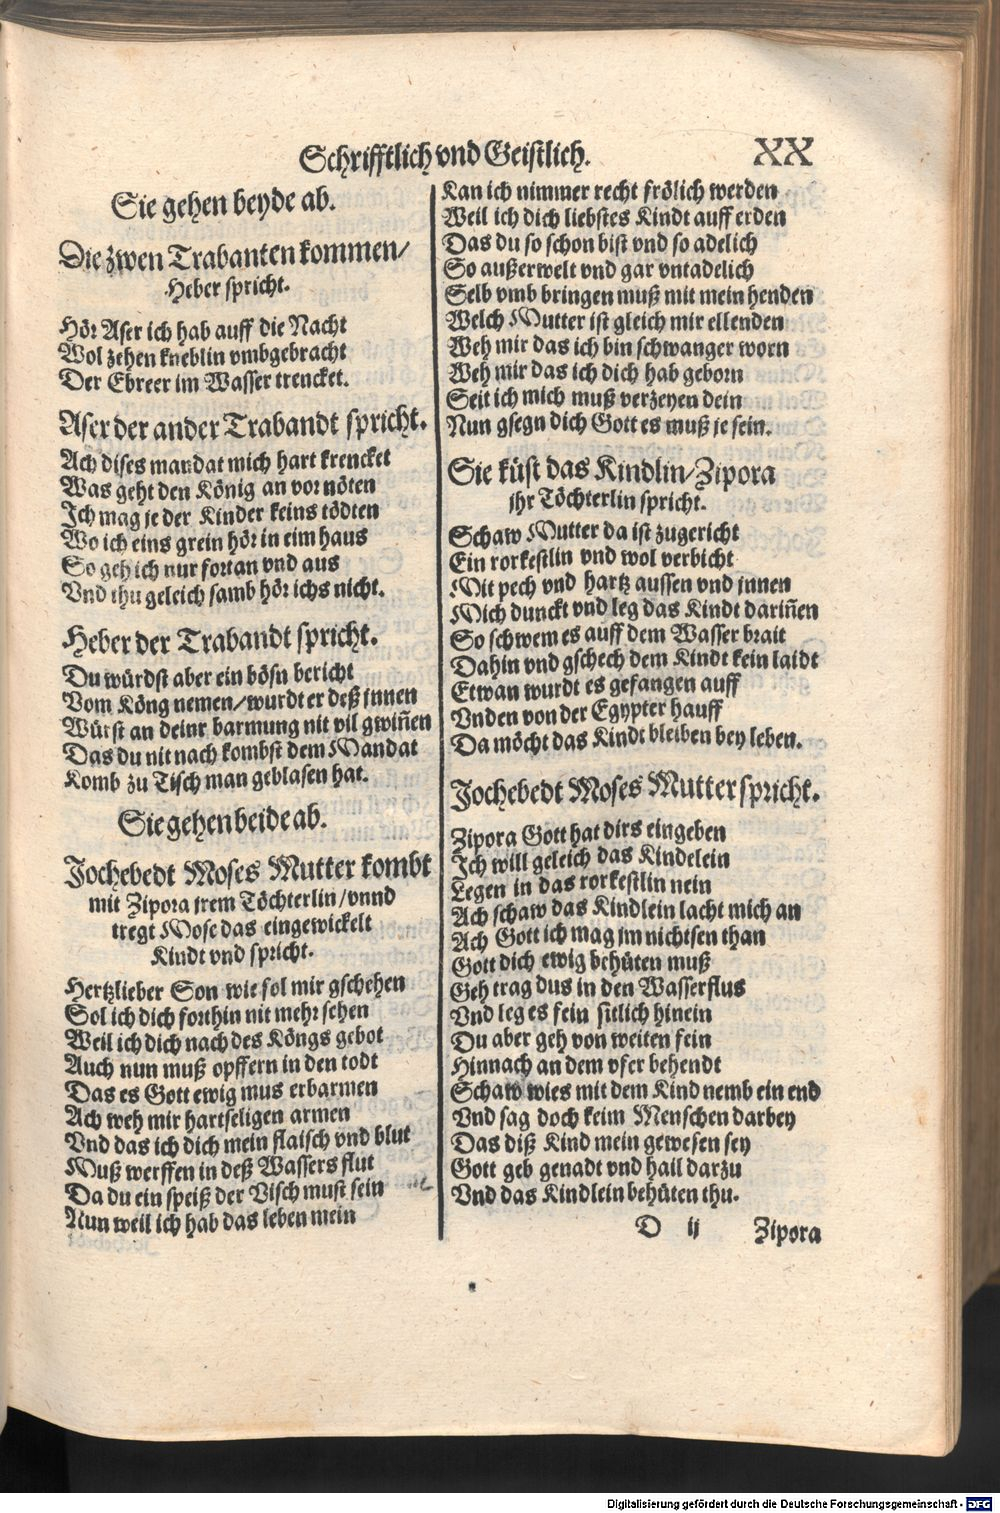 Schrifftlich vnd Geistlich. XX
Sie gehen beyde ab.
Die zwen Trabanten kommen/
Heber spricht.
Hör Aser ich hab auff die Nacht
Wol zehen kneblin vmbgebracht
Der Ebreer im Wasser trencket.
Aser der ander Trabandt spricht.
Ach dises mandat mich hart krencket
Was geht den König an vor nöten
Ich mag je der Kinder keins tödten
Wo ich eins grein hör in eim haus
So geh ich nur fortan vnd aus
Vnd thu geleich samb hör ichs nicht.
Heber der Trabandt spricht.
Du würdst aber ein bösn bericht
Vom Köng nemen/wurdt er deß jnnen
Würst an deinr barmung nit vil gwiñen
Das du nit nach kombst dem Mandat
Komb zu Tisch man geblasen hat.
Sie gehen beide ab.
Jochebedt Moses Mutter kombt
mit Zipora jrem Töchterlin/vnnd
tregt Mose das eingewickelt
Kindt vnd spricht.
Hertzlieber Son wie sol mir gschehen
Sol ich dich forthin nit mehr sehen
Weil ich dich nach des Köngs gebot
Auch nun muß opffern in den todt
Das es Gott ewig mus erbarmen
Ach weh mir hartseligen armen
Vnd das ich dich mein flaisch vnd blut
Muß werffen in deß Wassers flut
Da du ein speiß der Visch must sein
Nun weil ich hab das leben mein
Kan ich nimmer recht frölich werden
Weil ich dich liebstes Kindt auff erden
Das du so schon bist vnd so adelich
So außerwelt vnd gar vntadelich
Selb vmb bringen muß mit mein henden
Welch Mutter ist gleich mir ellenden
Weh mir das ich bin schwanger worn
Weh mir das ich dich hab geborn
Seit ich mich muß verzeyen dein
Nun gsegn dich Gott es muß je sein.
Sie küst das Kindlin/Zipora
jhr Töchterlin spricht.
Schaw Mutter da ist zugericht
Ein rorkestlin vnd wol verbicht
Mit pech vnd hartz aussen vnd jnnen
Mich dunckt vnd leg das Kindt dariñen
So schwem es auff dem Wasser brait
Dahin vnd gschech dem Kindt kein laidt
Etwan wurdt es gefangen auff
Vnden von der Egypter hauff
Da möcht das Kindt bleiben bey leben.
Jochebedt Moses Mutter spricht.
Zipora Gott hat dirs eingeben
Ich will geleich das Kindelein
Legen in das rorkestlin nein
Ach schaw das Kindlein lacht mich an
Ach Gott ich mag jm nichtsen than
Gott dich ewig behüten muß
Geh trag dus in den Wasserflus
Vnd leg es fein sitlich hinein
Du aber geh von weiten fein
Hinnach an dem vfer behendt
Schaw wies mit dem Kind nemb ein end
Vnd sag doch keim Menschen darbey
Das diß Kind mein gewesen sey
Gott geb genadt vnd hail darzu
Vnd das Kindlein behüten thu.
D ij Zipora
Digitalisierung gefördert durch die Deutsche Forschungsgemeinschaft - DFG